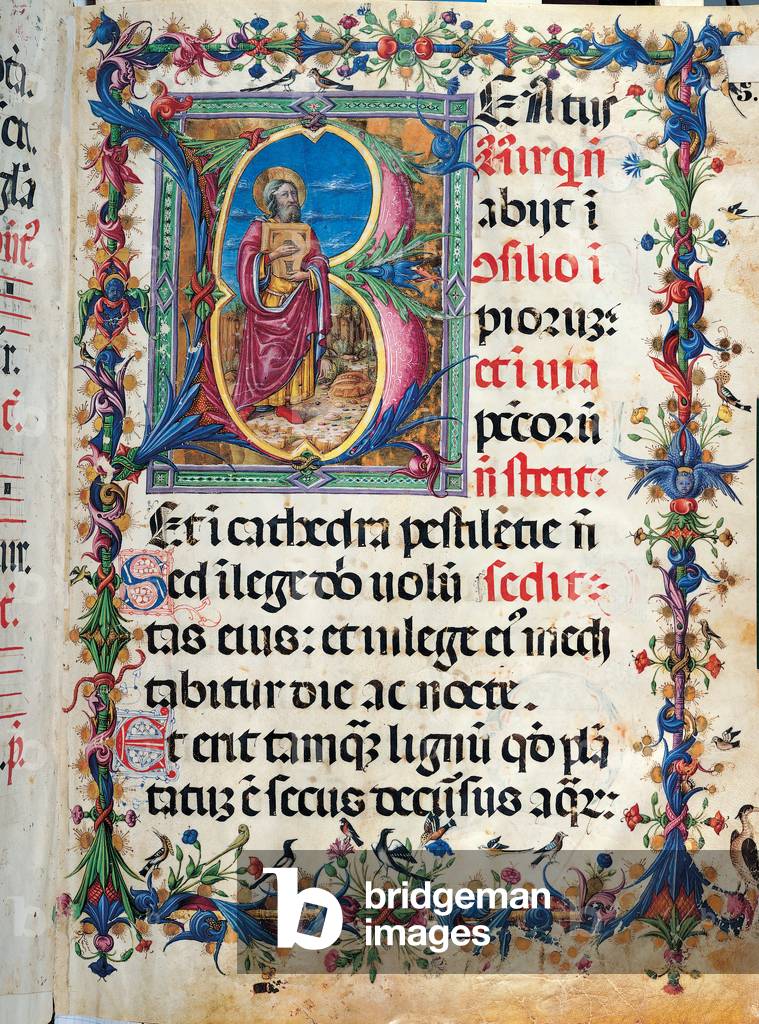 BEatus
vir qui n̄
abijt ī
ɔsilio ī
pioruz:
et ī uia
pc̄corū
n̄ stetit:
Et ī cathedra pestilētie n̄
Sed ī lege dn̄i uolū sedit:
tas eius: et in lege eiꝰ medi
tabitur die ac nocte.
Et erit tamqꝫ lignū qd̄ plā
tatuz ē secus decursus aqr̄:
bridgeman
images